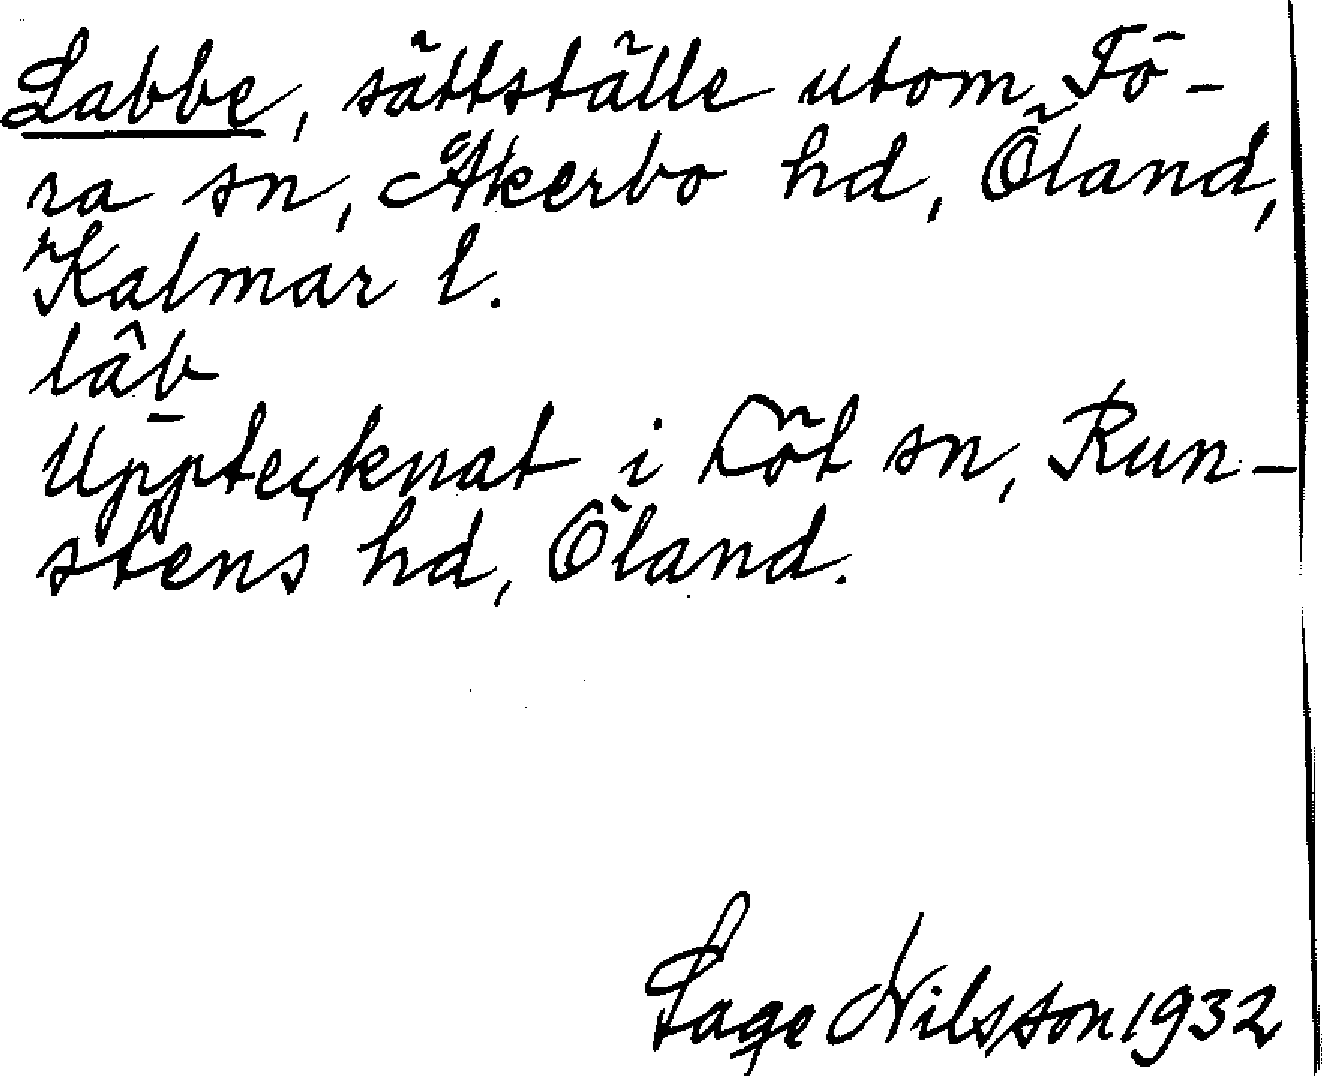 Labbe, sättställe utom Fö-
ra sn, Åkerbo hd, Öland,
Kalmar l.
lâb̲
Upptecknat i Löt sn, Run-
stens hd, Öland.
Sage Nilsson 1932